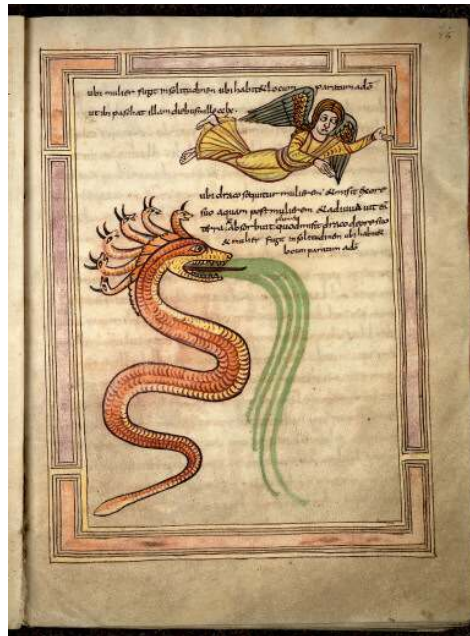 ubi mulier fugit in solitudinem ubi habet locum paratum a dō
ut ibi pascat illam diebus
ubi draco sequitur mulierem & misit ex ore
suo aquam post mulierem & adiuvit
terra & absorbuit quod misit draco de ore suo
& mulier fugit in solitudinem ubi habet
locum paratum a dō